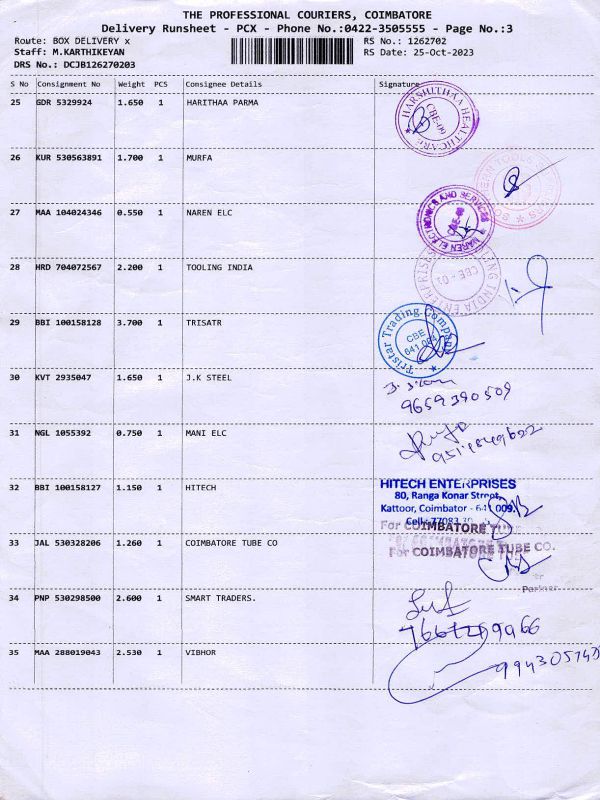 THE PROFESSIONAL COURIERS, COIMBATORE
Delivery Runsheet - PCX - Phone No.:0422-3505555 - Page No.:3
Route: BOX DELIVERY x RS No.: 1262702
Staff: M.KARTHIKEYAN RS Date: 25-Oct-2023
DRS No.: DCJB126270203
S No Consignment No Weight PCS Consignee Details Signature
25 GDR 5329924 1.650 1 HARITHAA PARMA
HARSHITHAA HEALTHCARE
CBE-09
26 KUR 530563891 1.700 1 MURFA
27 MAA 104024346 0.550 1 NAREN ELC
NAREN ELECTRONICS AND SERVICES
28 HRD 704072567 2.200 1 TOOLING INDIA
INDIA ENTERPRISES
CBE - 01
29 BBI 100158128 3.700 1 TRISATR
Tristar Trading Company
CBE
641
30 KVT 2935047 1.650 1 J.K STEEL
9659390509
31 NGL 1055392 0.750 1 MANI ELC
32 BBI 100158127 1.150 1 HITECH
HITECH ENTERPRISES
80, Ranga Konar Street,
Kattoor, Coimbator - 641 009.
Cell: 77083
For COIMBATORE TUBE
33 JAL 530328206 1.260 1 COIMBATORE TUBE CO
For COIMBATORE TUBE CO.
Partner
34 PNP 530298500 2.600 1 SMART TRADERS.
35 MAA 288019043 2.530 1 VIBHOR